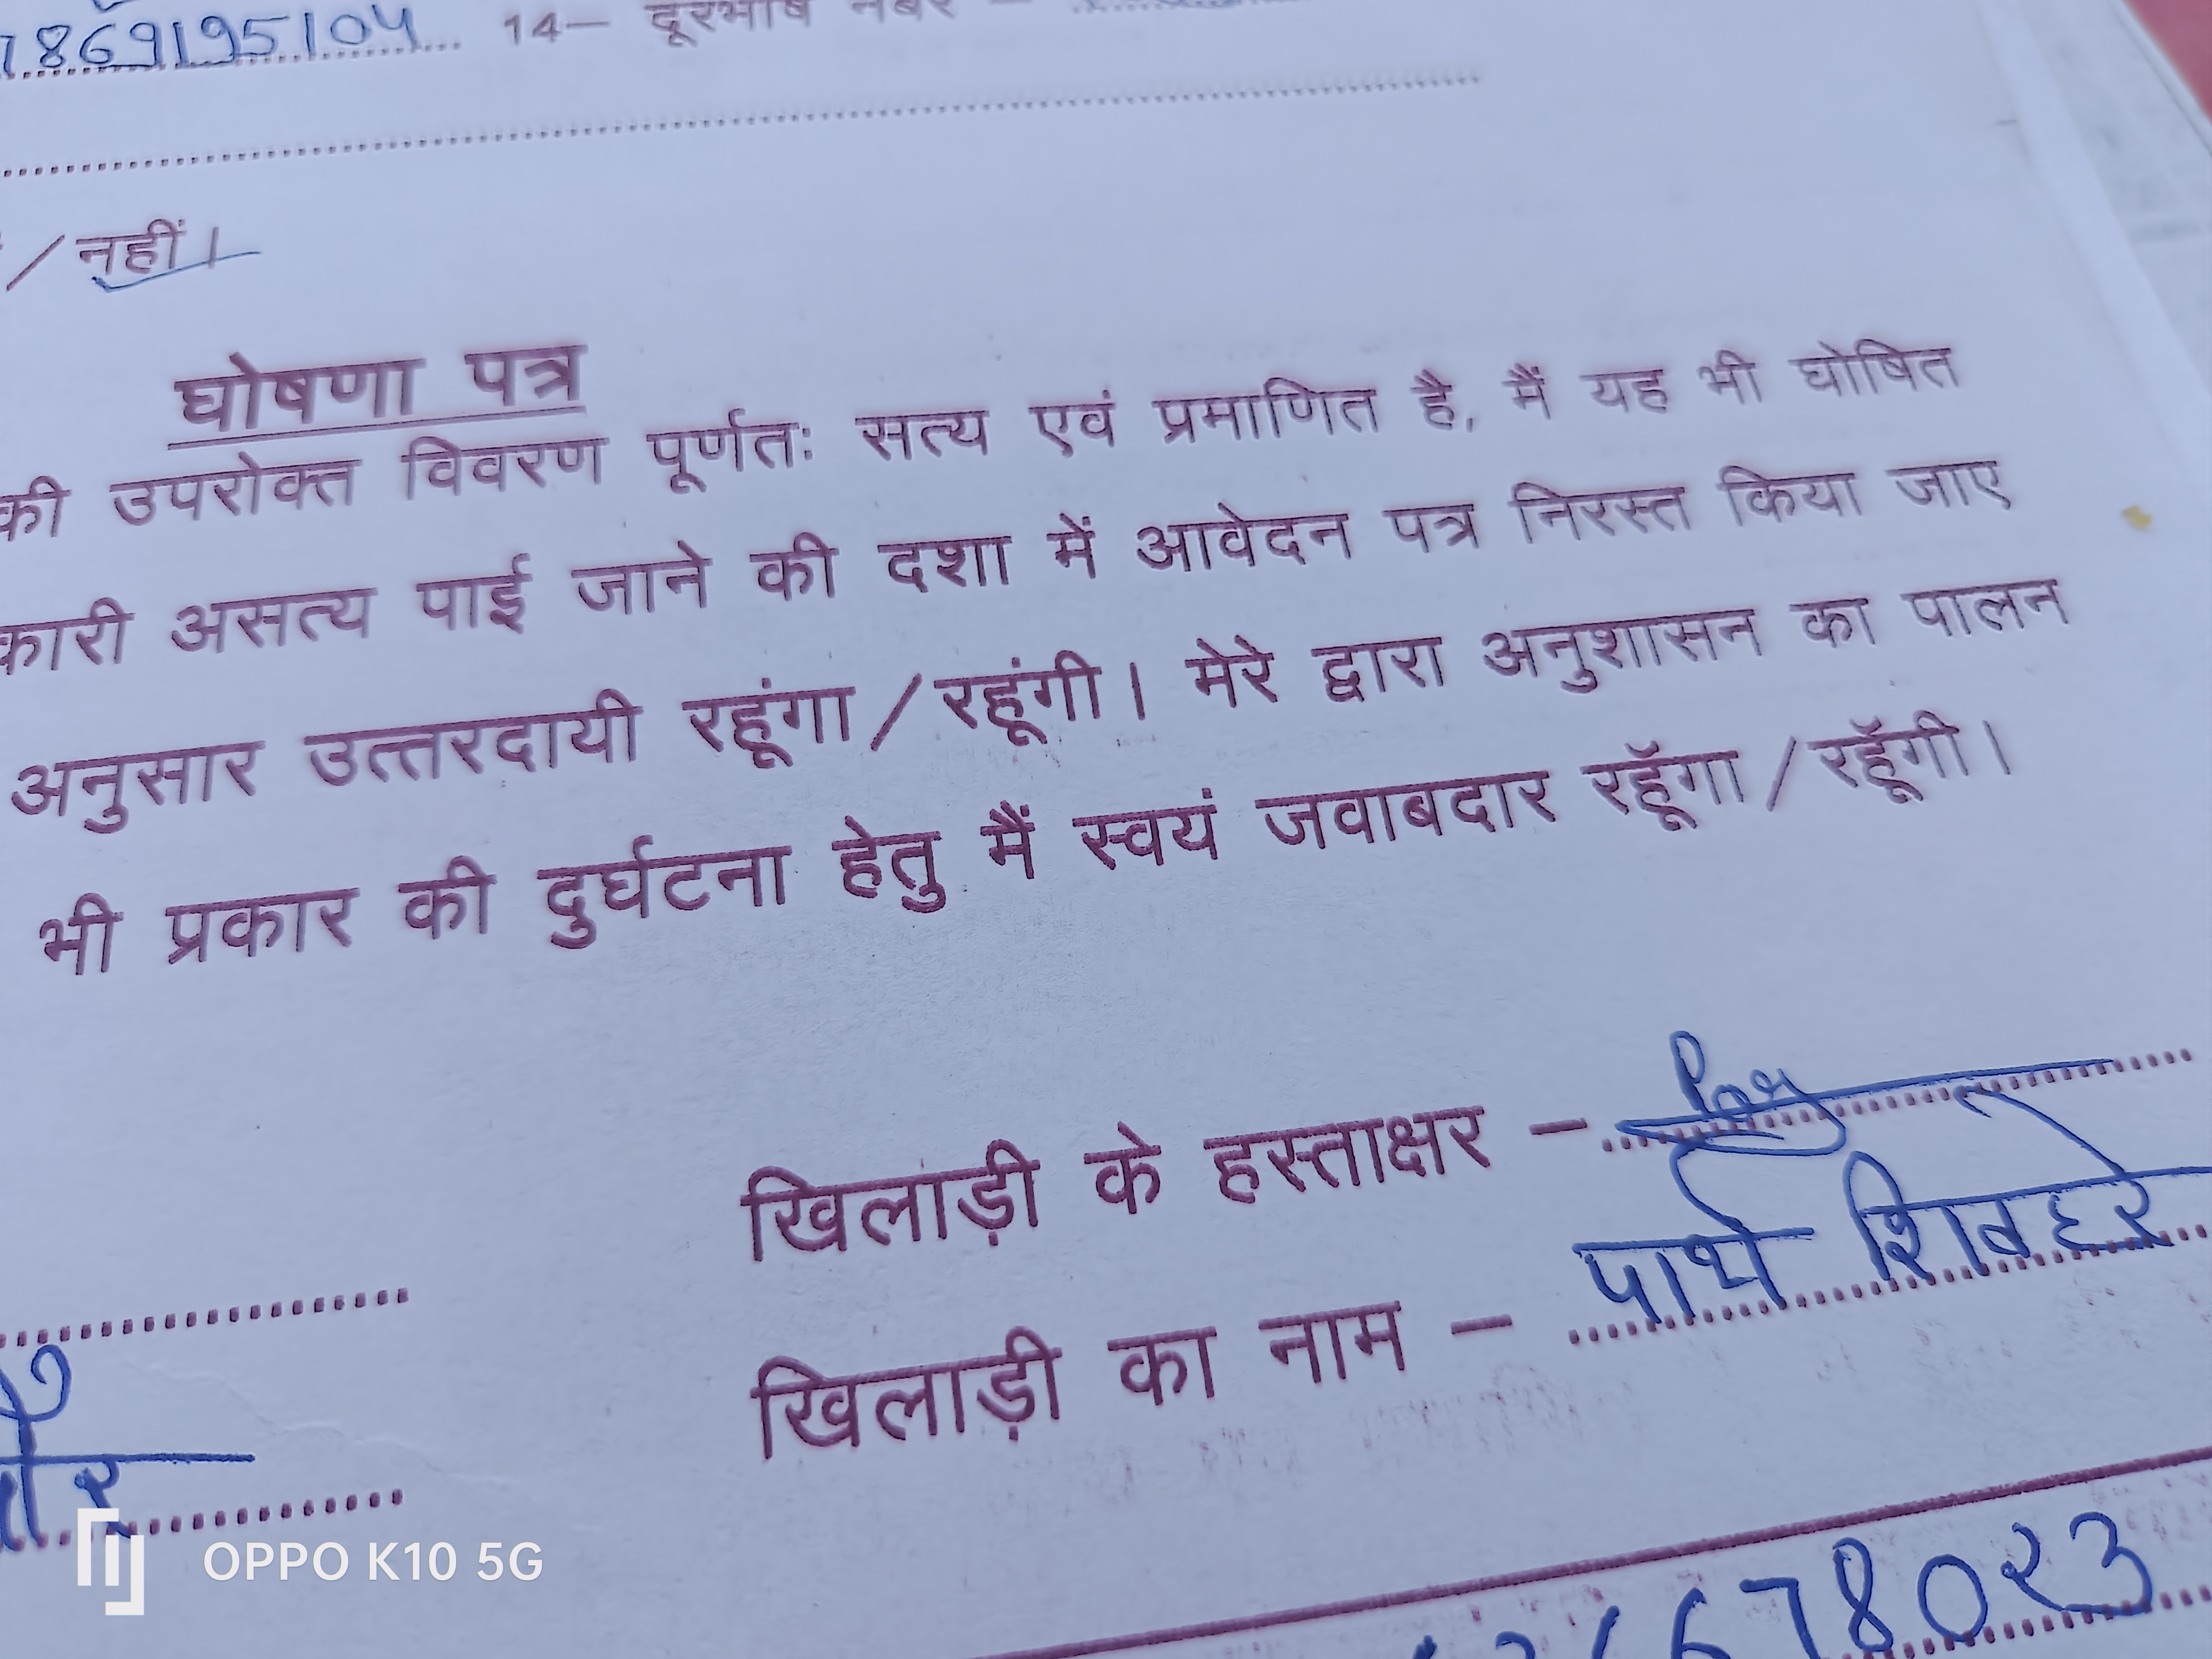 7869195104 14— दूरभाष नंबर —
/ नहीं।
घोषणा पत्र
की उपरोक्त विवरण पूर्णतः सत्य एवं प्रमाणित है, मैं यह भी घोषित
कारी असत्य पाई जाने की दशा में आवेदन पत्र निरस्त किया जाए
अनुसार उत्तरदायी रहूंगा/रहूंगी। मेरे द्वारा अनुशासन का पालन
भी प्रकार की दुर्घटना हेतु मैं स्वयं जवाबदार रहूॅगा/रहूॅगी।
खिलाड़ी के हस्ताक्षर –
खिलाड़ी का नाम – पार्थ शिवहरे
678023
OPPO K10 5G